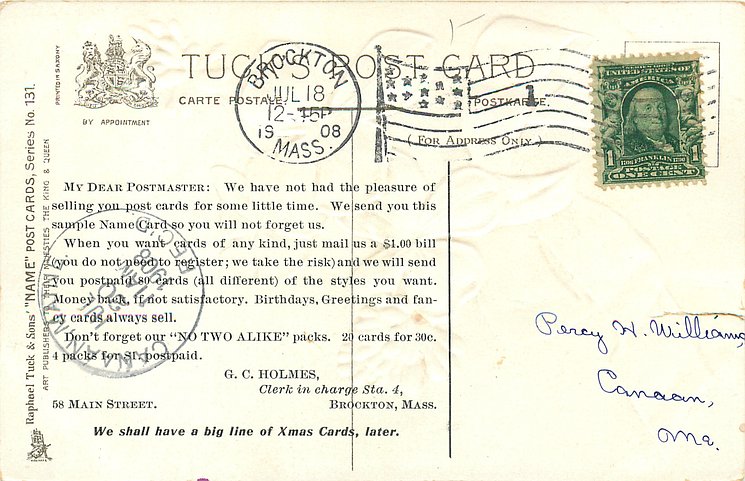 TUCK'S POST CARD
CARTE POSTALE
POSTKARTE.
( FOR ADDRESS ONLY )
BY APPOINTMENT
PRINTED IN SAXONY
Raphael Tuck & Sons' "NAME" POST CARDS, Series No. 131.
ART PUBLISHERS TO THEIR MAJESTIES THE KING & QUEEN
BROCKTON
JUL 18
12-45P
19 08
MASS.
1
UNITED STATES OF
AMERICA
1706 FRANKLIN 1790
POSTAGE
1 ONE CENT 1
MY DEAR POSTMASTER: We have not had the pleasure of
selling you post cards for some little time. We send you this
sample Name Card so you will not forget us.
When you want cards of any kind, just mail us a $1.00 bill
(you do not need to register; we take the risk) and we will send
you postpaid 80 cards (all different) of the styles you want.
Money back, if not satisfactory. Birthdays, Greetings and fan-
cy cards always sell.
Don't forget our "NO TWO ALIKE" packs. 20 cards for 30c.
4 packs for $1. postpaid.
G. C. HOLMES,
Clerk in charge Sta. 4,
58 MAIN STREET. BROCKTON, MASS.
We shall have a big line of Xmas Cards, later.
CANAAN, MAINE.
JUL
20
1908
REC'D.
Percy H. Williams
Canaan,
Me.